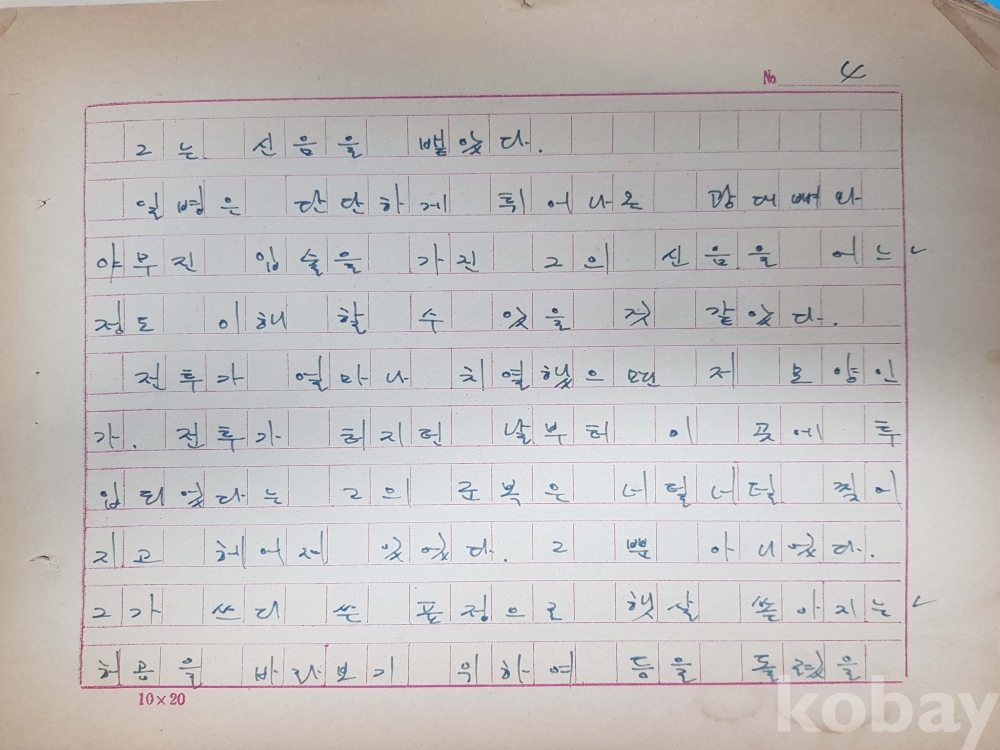 № 4
그는 신음을 뱉았다.
일병은 단단하게 튀어나온 광대뼈와
야무진 입술을 가진 그의 신음을 어느
정도 이해 할 수 있을 것 같았다.
전투가 얼마나 치열했으면 저 모양인
가. 전투가 허지런 날부터 이 곳에 투
입되었다는 그의 군복은 너덜너덜 찢어
지고 헤어져 있었다. 그 뿐 아니었다.
그가 쓰디 쓴 표정으로 햇살 쏟아지는
허공을 바라보기 위하여 등을 돌렸을
10×20
kobay